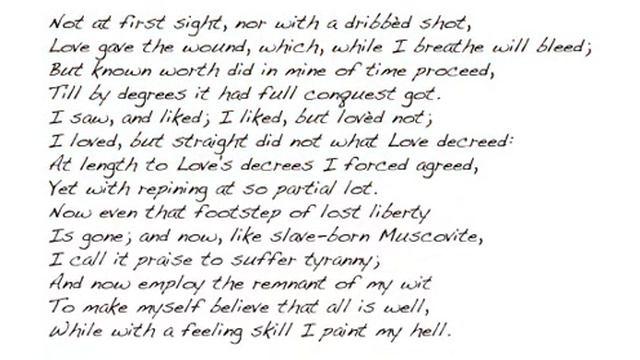 Not at first sight, nor with a dribbèd shot,
Love gave the wound, which, while I breathe will bleed;
But known worth did in mine of time proceed,
Till by degrees it had full conquest got.
I saw, and liked; I liked, but lovèd not;
I loved, but straight did not what Love decreed:
At length to Love's decrees I forced agreed,
Yet with repining at so partial lot.
Now even that footstep of lost liberty
Is gone; and now, like slave-born Muscovite,
I call it praise to suffer tyranny;
And now employ the remnant of my wit
To make myself believe that all is well,
While with a feeling skill I paint my hell.